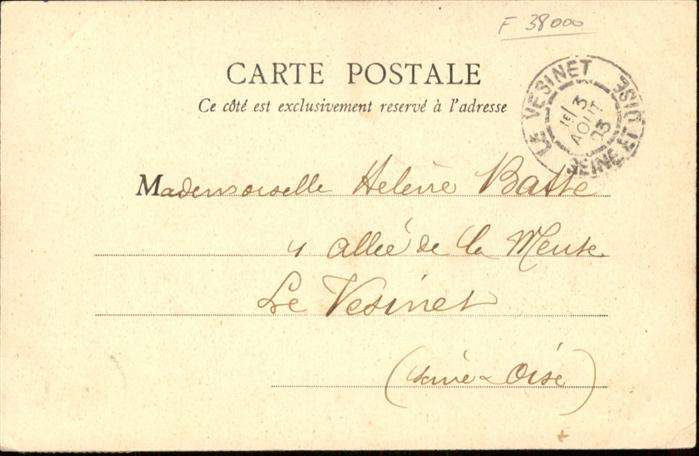 F 38000
CARTE POSTALE
Ce côté est exclusivement reservé à l'adresse
LE VESINET
SEINE ET OISE
1E/3
AOUT
03
Mademoiselle Helène Batte
4 allée de la Meute
Le Vesinet
(Seine & Oise)